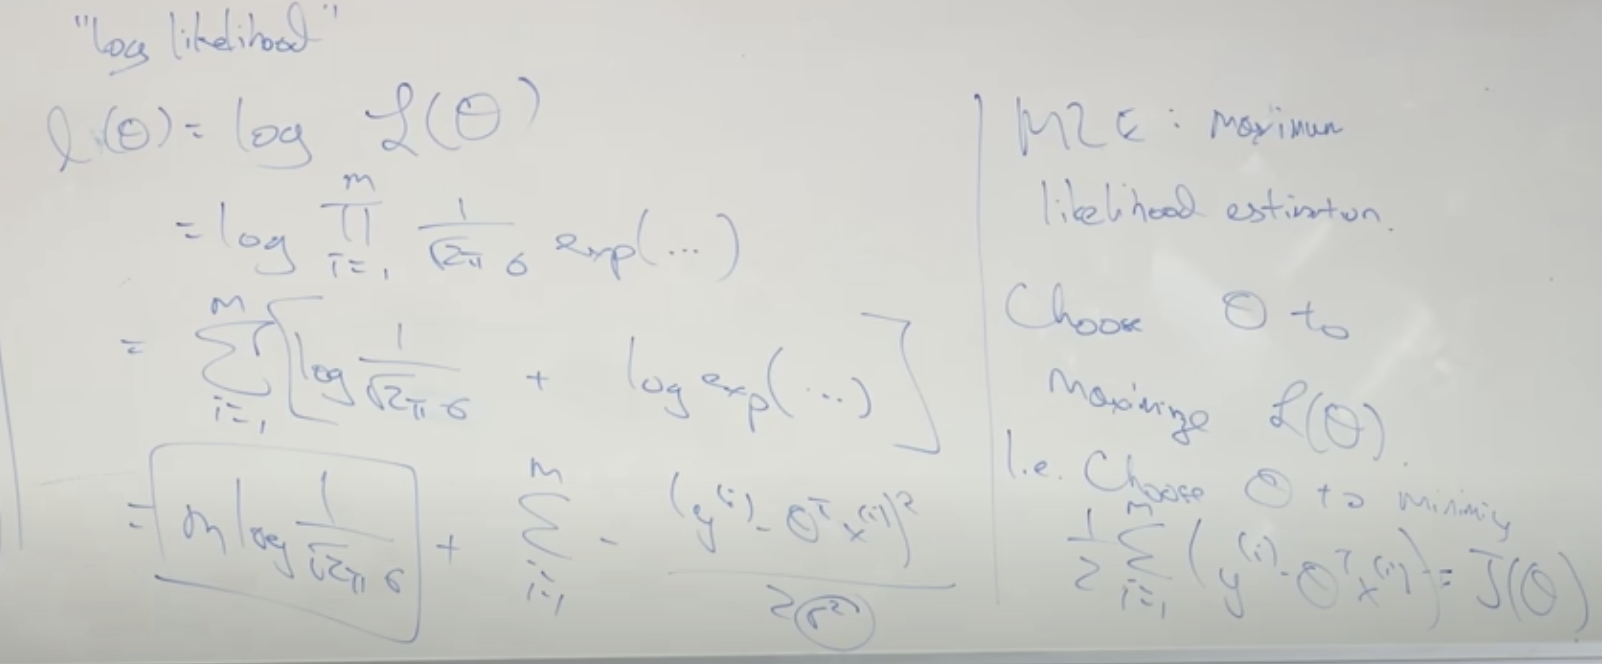 "log likelihood"
l(θ) = log ℒ(θ)
= log ∏_{i=1}^{m} 1/(√2π σ) exp(...)
= ∑_{i=1}^{m} [ log 1/(√2π σ) + log exp(...) ]
= m log 1/(√2π σ) + ∑_{i=1}^{m} - (y^(i) - θ^T x^(i))^2 / 2σ^2
MLE : maximum
likelihood estimation.
Choose θ to
maximize ℒ(θ).
I.e. Choose θ to minimize
1/2 ∑_{i=1}^{m} (y^(i) - θ^T x^(i)) = J(θ)